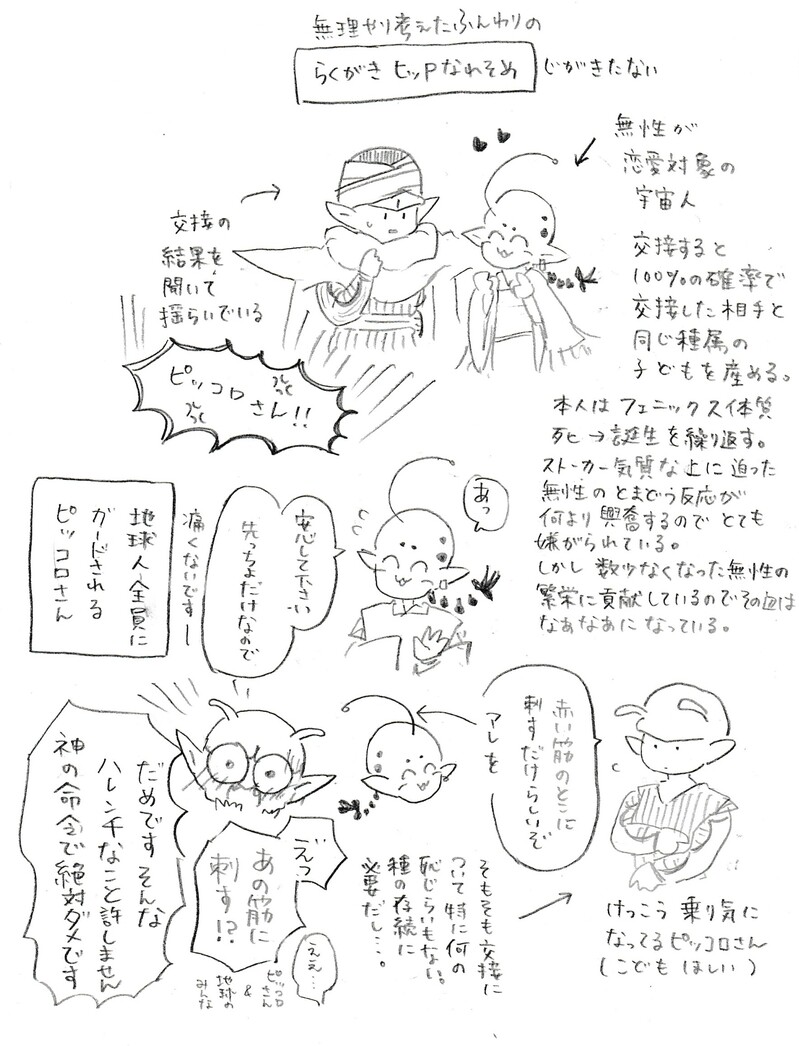 無理やり考えたふんわりの
らくがき ヒッPなれそめ
じがきたない
無性が
恋愛対象の
宇宙人
交接すると
100%の確率で
交接した相手と
同じ種属の
子どもを産める。
本人はフェニックス体質
死→誕生を繰り返す。
ストーカー気質な上に迫った
無性のとまどう反応が
何より興奮するのでとても
嫌がられている。
しかし数少なくなった無性の
繁栄に貢献しているのでその血は
なあなあになっている。
交接の
結果を
聞いて
揺らいでいる
ピッコロさん!!
あっ
安心して下さい
先っちょだけなので
痛くないですー
地球人全員に
ガードされる
ピッコロさん
赤い筋のとこに
刺すだけらしいぞ
アレを
けっこう乗り気に
なってるピッコロさん
(こどもほしい)
そもそも交接に
ついて特に何の
恥じらいもない。
種の存続に
必要だし…。
えっ
あの筋に
刺す!?
ええ…
ピッコロさん
&
地球の
みんな
だめですそんな
ハレンチなこと許しません
神の命令で絶対ダメです